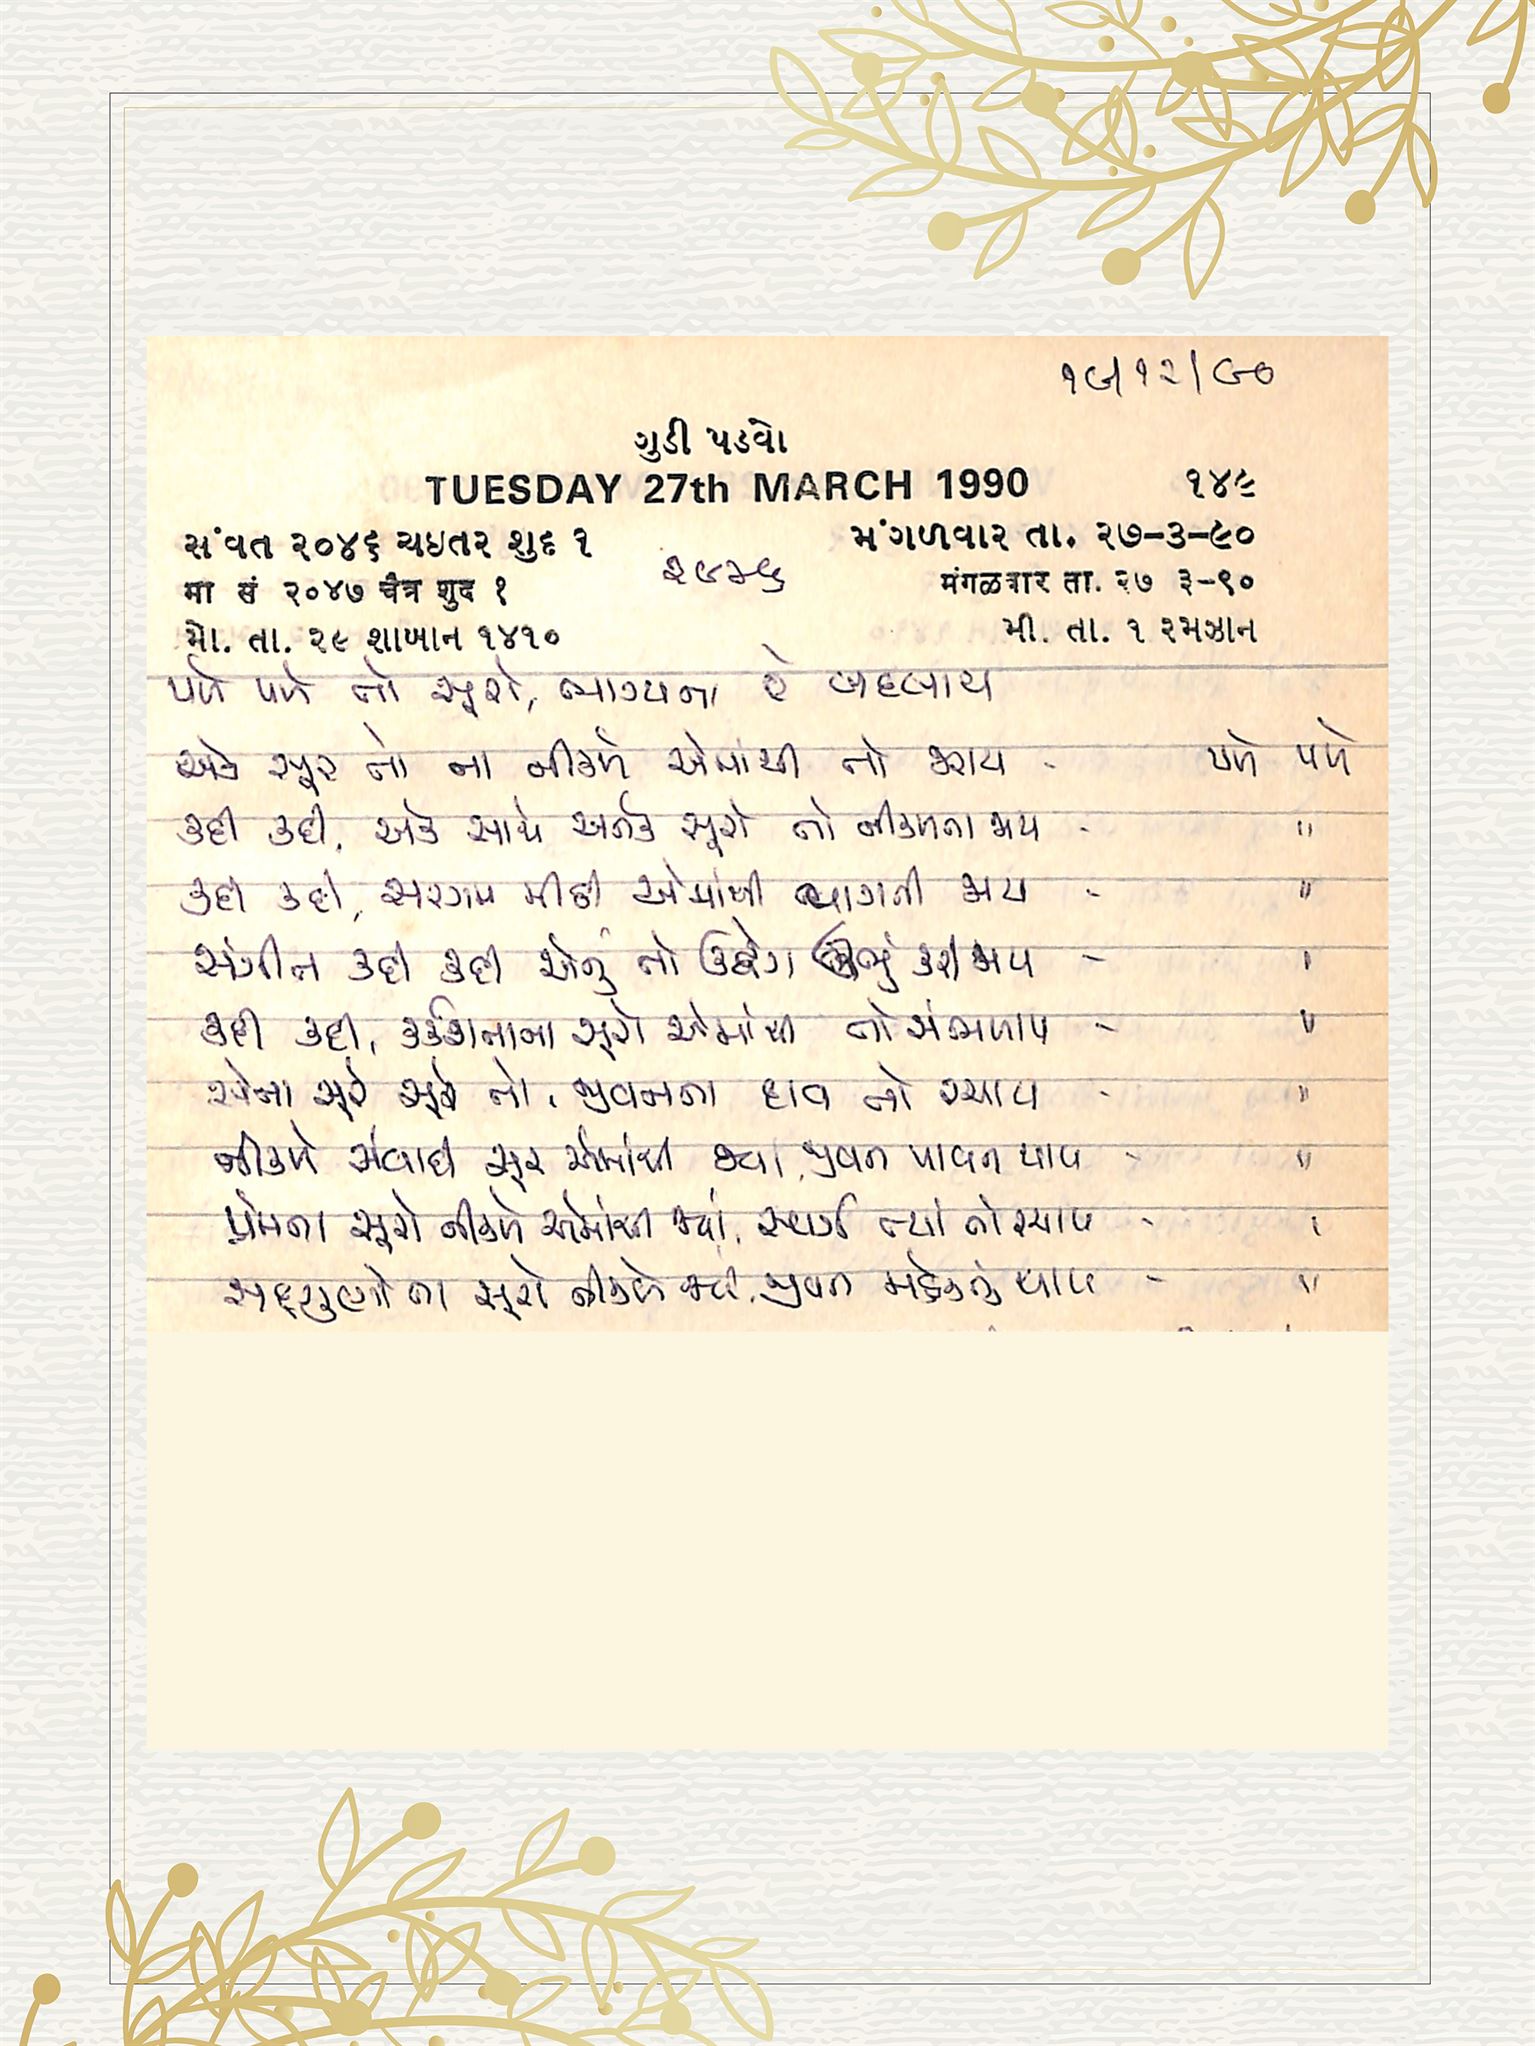 ૧૯/૧૨/૯૦
ગુડી પડવો
TUESDAY 27th MARCH 1990 ૧૪૯
સંવત ૨૦૪૬ ચઇતર શુદ ૧ મંગળવાર તા. ૨૭-૩-૯૦
૨૯૭૬
मा सं २०४७ चैत्र शुद १ मंगळवार ता. २७ ३-९०
મો. તા. ૨૯ શાબાન ૧૪૧૦ મી. તા. ૧ રમઝાન
પળે પળે તો સૂરો, ભાગ્યના રે બદલાય
એક સૂર તો ના નીકળે એમાંથી તો જરાય - પળે પળે
કદી કદી, એક સાથે અનેક સૂરો તો નીકળતા જાય - "
કદી કદી, સરગમ મીઠી એમાંથી વાગતી જાય - "
સંગીત કદી કદી એનું તો ઉદ્વેગ ઊભું કરી જાય - "
કદી કદી, કર્કશતાના સૂરો એમાંથી તો સંભળાય - "
એના સૂરે સૂરે તો, જીવનના દાવ તો રચાય - "
નીકળે સંવાદી સૂર એમાંથી જ્યાં, જીવન પાવન થાય - "
પ્રેમના સૂરો નીકળે એમાંથી જ્યાં, સ્વર્ગ ત્યાં તો રચાય - "
સદ્ગુણોના સૂરો નીકળે જ્યાં, જીવન મહેકતું થાય - "